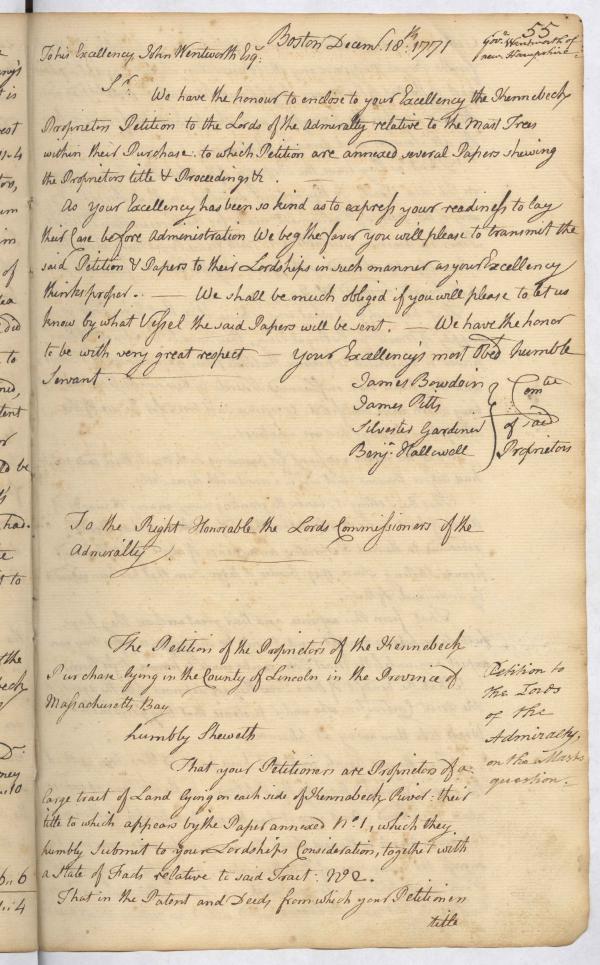 55
Boston Decemr. 18th. 1771
Govr. Wentworth of
new Hampshire
To his Excellency John Wentworth Esqr.
Sr.
We have the honour to enclose to your Excellency the Kennebeck
Proprietors Petition to the Lords of the Admiralty relative to the Mast Trees
within their Purchase: to which Petition are annexed several Papers shewing
the Proprietors title & Proceedings &c.
As your Excellency has been so kind as to express your readiness to lay
their Case before Administration We beg the favor you will please to transmit the
said Petition & Papers to their Lordships in such manner as your Excellency
thinks proper. — We shall be much obliged if you will please to let us
know by what Vessel the said Papers will be sent. — We have the honor
to be with very great respect — Your Excellency's most Obedt humble
Servant.
James Bowdoin
James Pitts
Silvester Gardiner
Benjn. Hallowell
Comtee
of said
Proprietors
To the Right Honorable the Lords Commissioners of the
Admirallty.
The Petition of the Proprietors of the Kennebeck
Purchase lying in the County of Lincoln in the Province of
Massachusetts Bay
humbly Sheweth
Petition to
the Lords
of the
Admiralty,
on the Masts
question.
That your Petitioners are Proprietors of a
large tract of Land lying on each side of Kennebeck River: their
title to which appears by the Paper annexed No 1., which they
humbly Submit to your Lordships Consideration, together with
a State of Facts relative to said Tract: No 2.
That in the Patent and Deeds from which your Petitioners
title